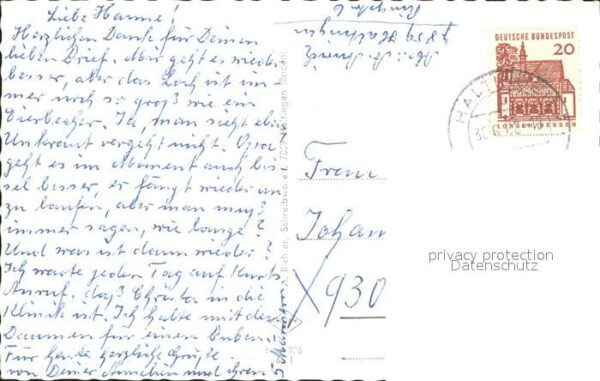 Liebe Hanne!
Herzlichen Dank für Deinen
lieben Brief. Mir geht es wieder
besser, aber das Loch ist im=
mer noch so groß wie ein
Eierbecher. Ja, man sieht eben
Unkraut vergeht nicht. Opa
geht es im Moment auch bis=
sel besser, er fängt wieder an
zu laufen, aber man muß
immer sagen, wie lange?
Und was ist dann wieder?
Ich warte jeden Tag auf Kurts
Anruf, daß Christa in die
Klinik ist. Ich halte mit den
Daumen für einen Buben!
Für heute herzliche Grüße
von Deiner und
Haltingen
DEUTSCHE BUNDESPOST
20
LORSCH/HESSEN
HALTIN
Frau
Johan
X 930
privacy protection
Datenschutz